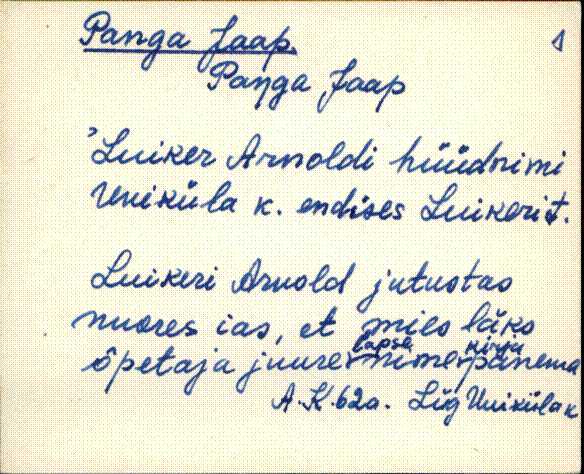 Panga Jaap. 1
Paŋga Jaap
'Luiker Arnoldi hüüdnimi
Uniküla k. endises Luikerit.
Luikeri Arnold jutustas
nuores ias, et mies läks
õpetaja juure lapse nime kirja panema
A. K. 62a. Lüg Uniküla k